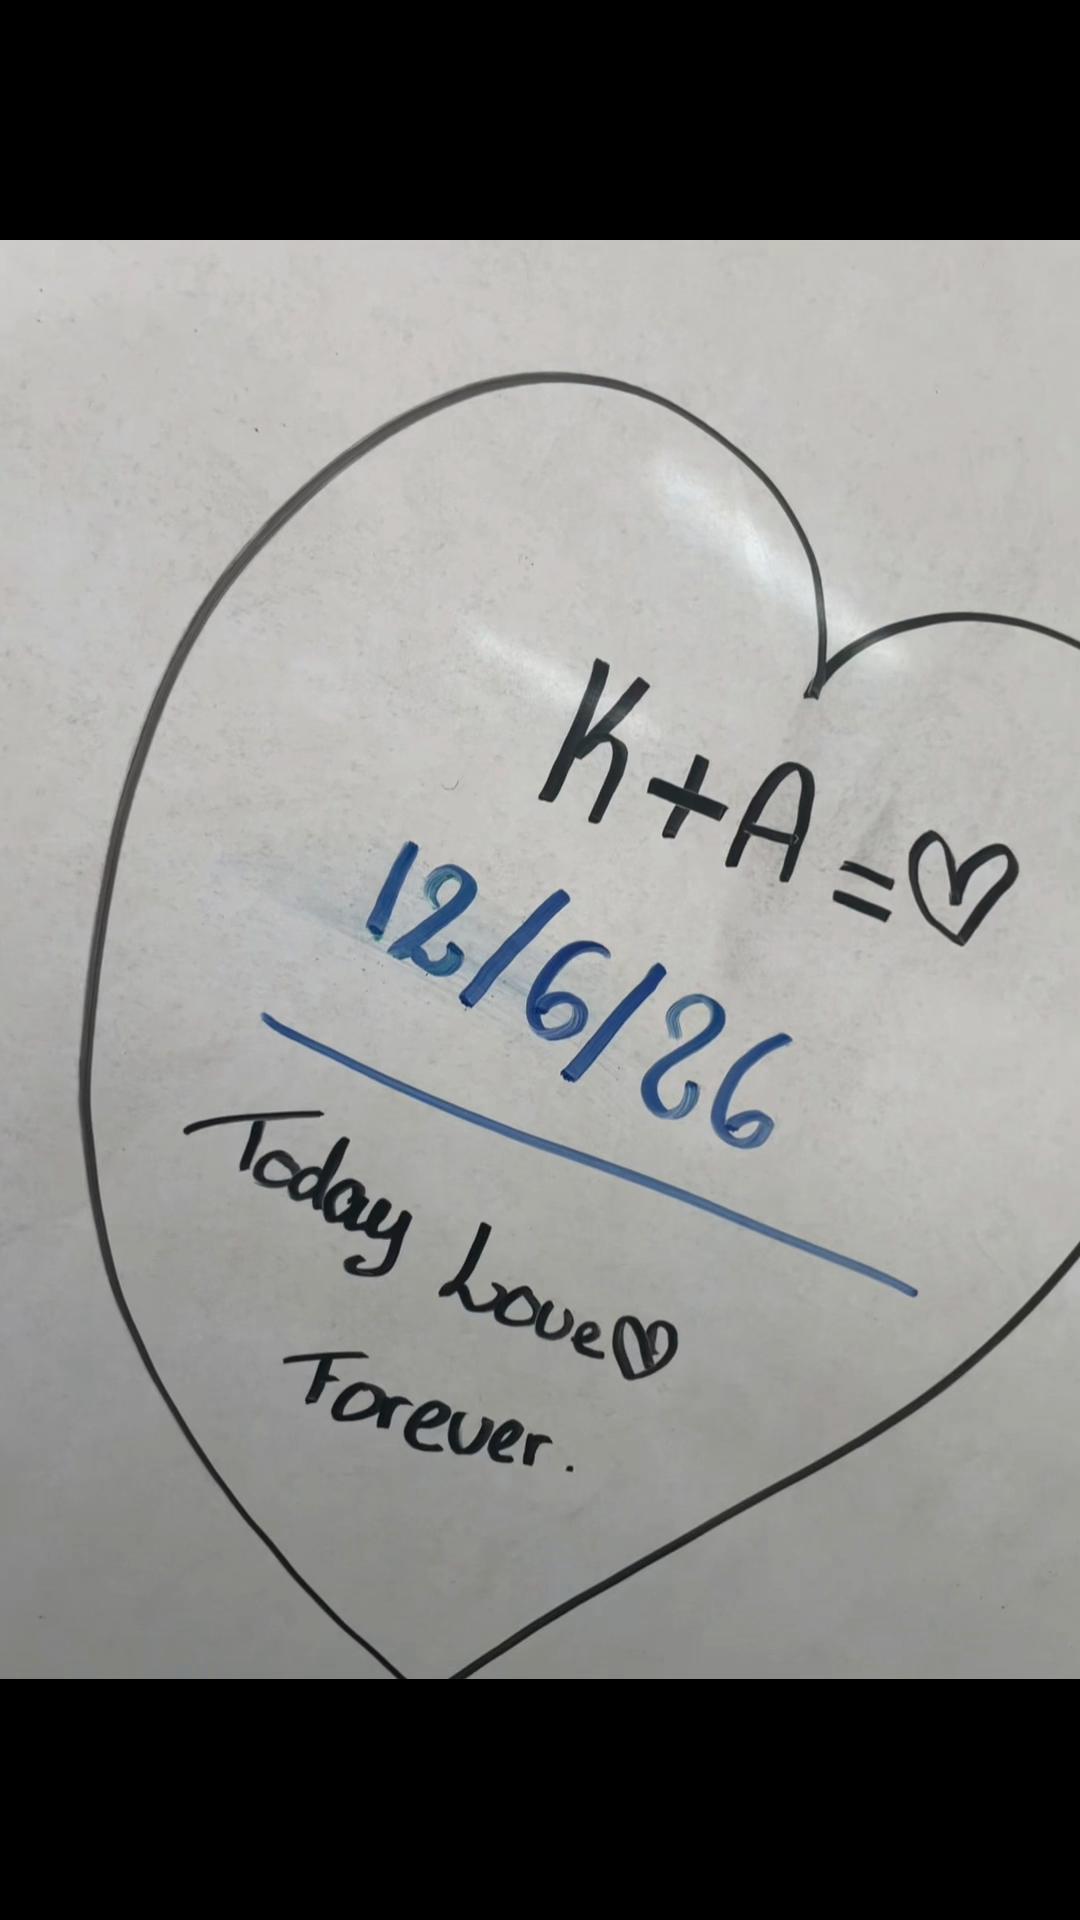 K+A=♡
12/6/26
Today Love♡
Forever.